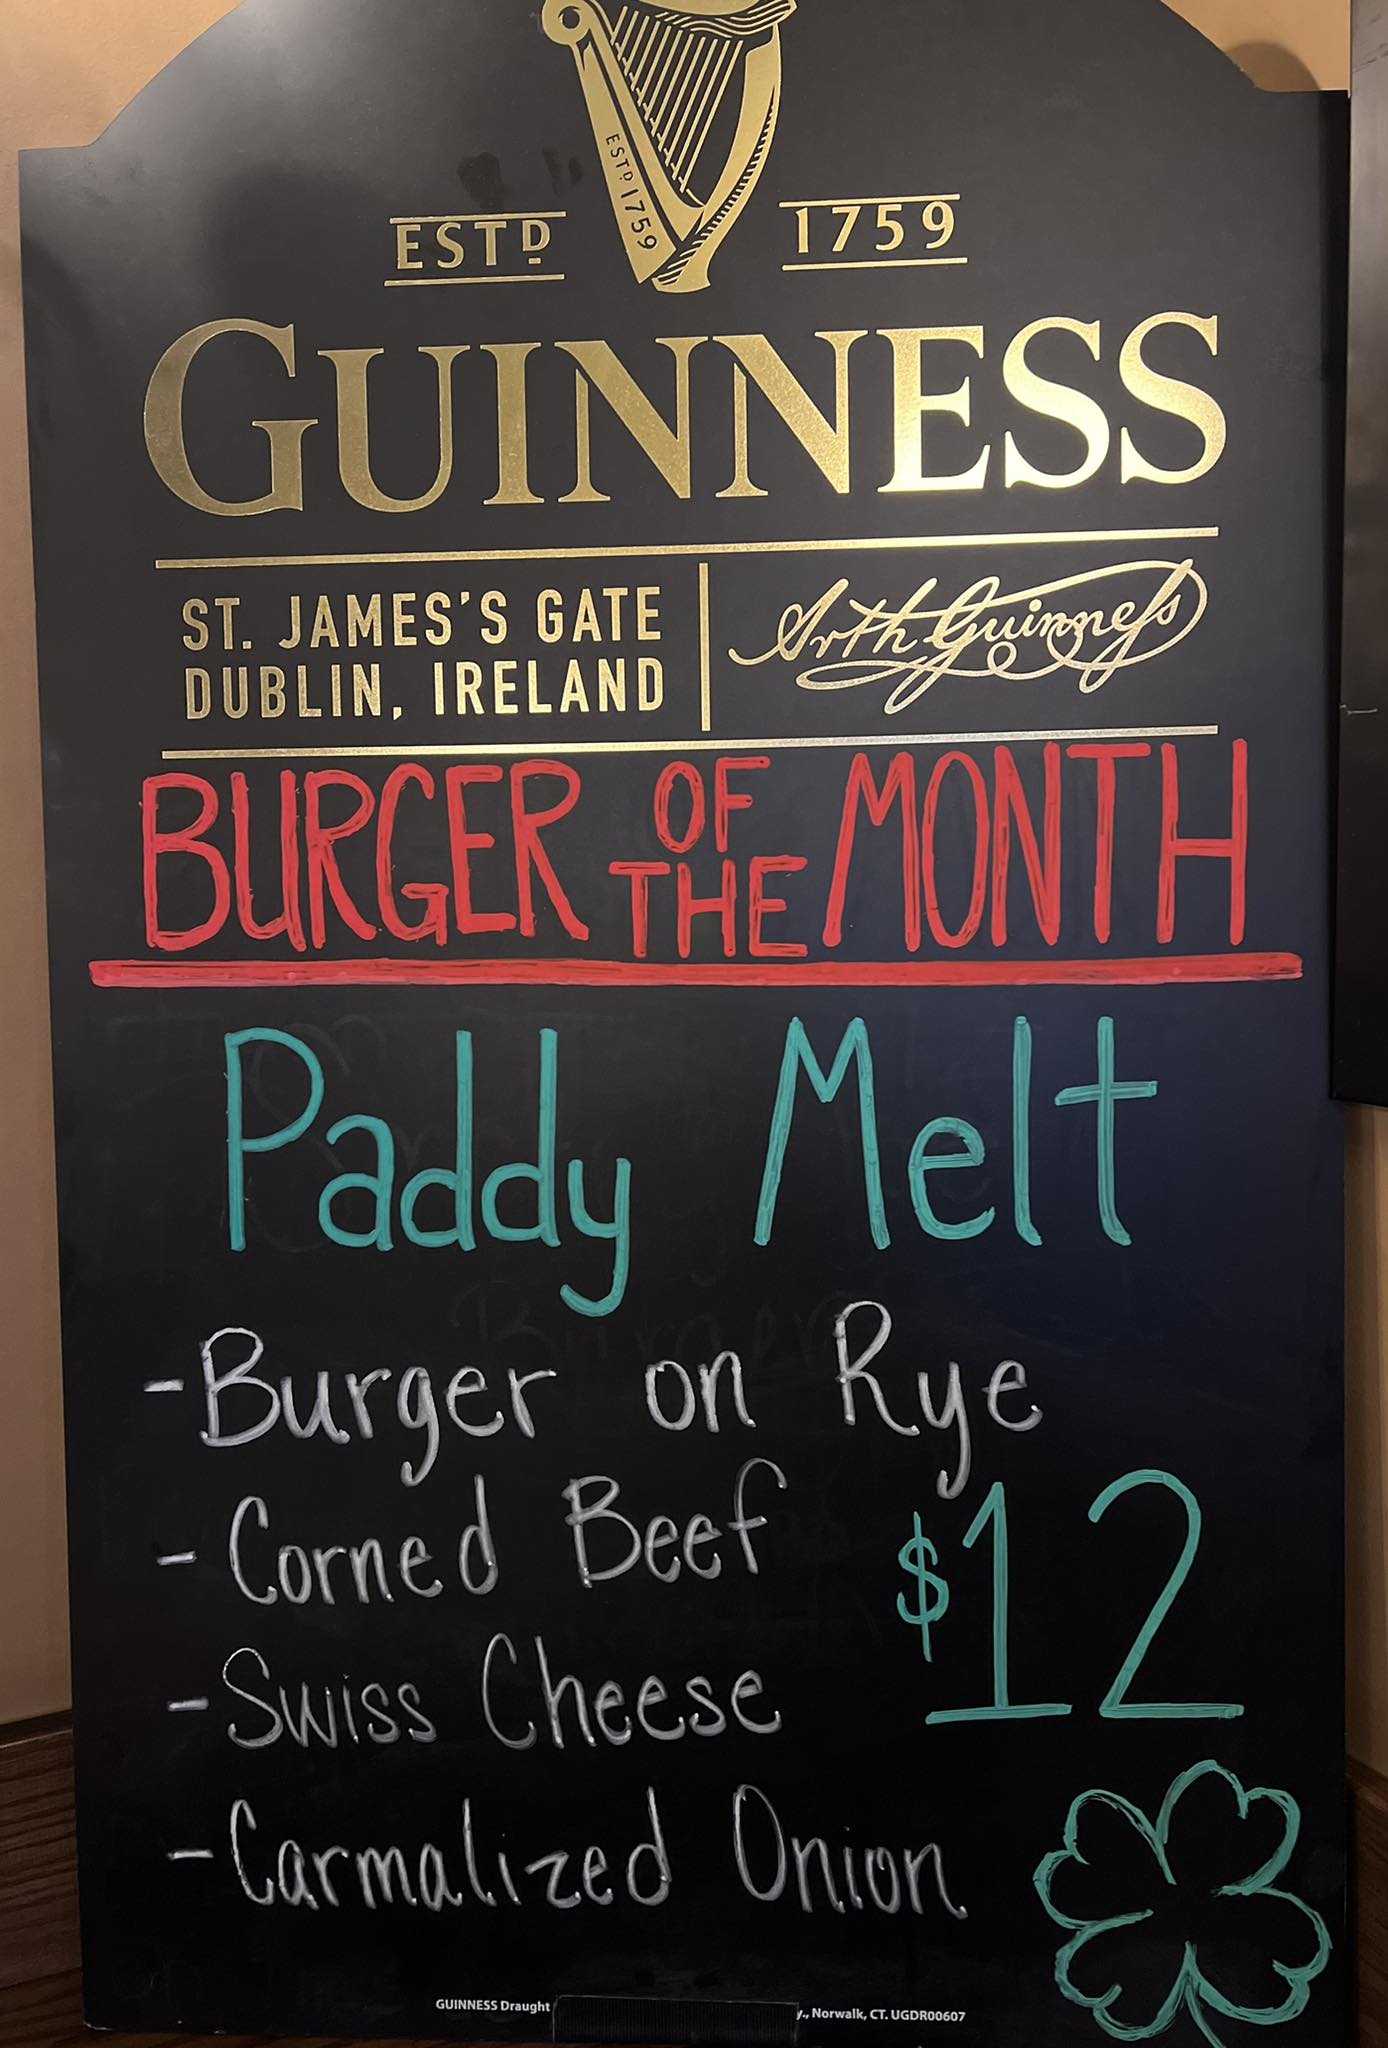 ESTD 1759
ESTD 1759
GUINNESS
ST. JAMES'S GATE
DUBLIN, IRELAND
Arth Guinness
BURGER OF THE MONTH
Paddy Melt
-Burger on Rye
-Corned Beef
$12
-Swiss Cheese
-Carmalized Onion
GUINNESS Draught
., Norwalk, CT. UGDR00607